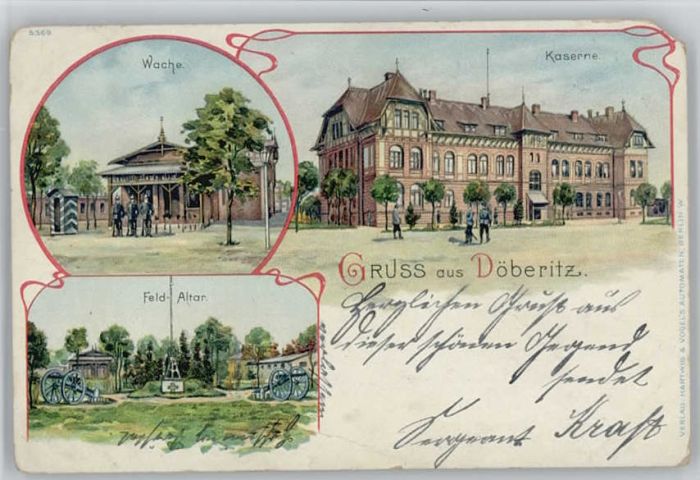 5569
Wache.
Kaserne.
GRUSS aus Döberitz.
Feld-Altar.
Herzlichen Gruß aus
dieser schönen Gegend
sendet
Sergeant Kraft
VERLAG: HARTWIG & VOGEL'S AUTOMATEN, BERLIN W.